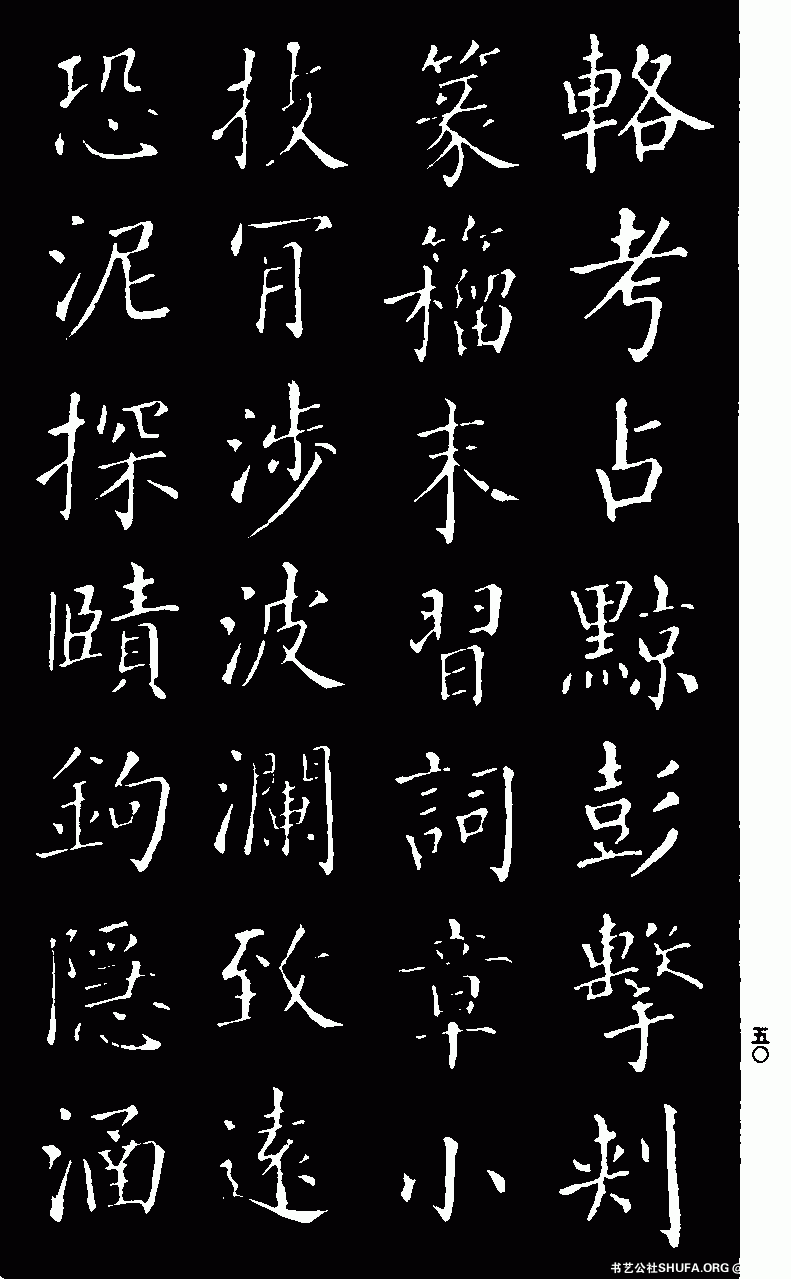 輅考占黥彭擊刾
篆籀末習詞章小
技肎涉波瀾致遠
恐泥探賾鉤隱涵
五〇
书艺公社SHUFA.ORG @